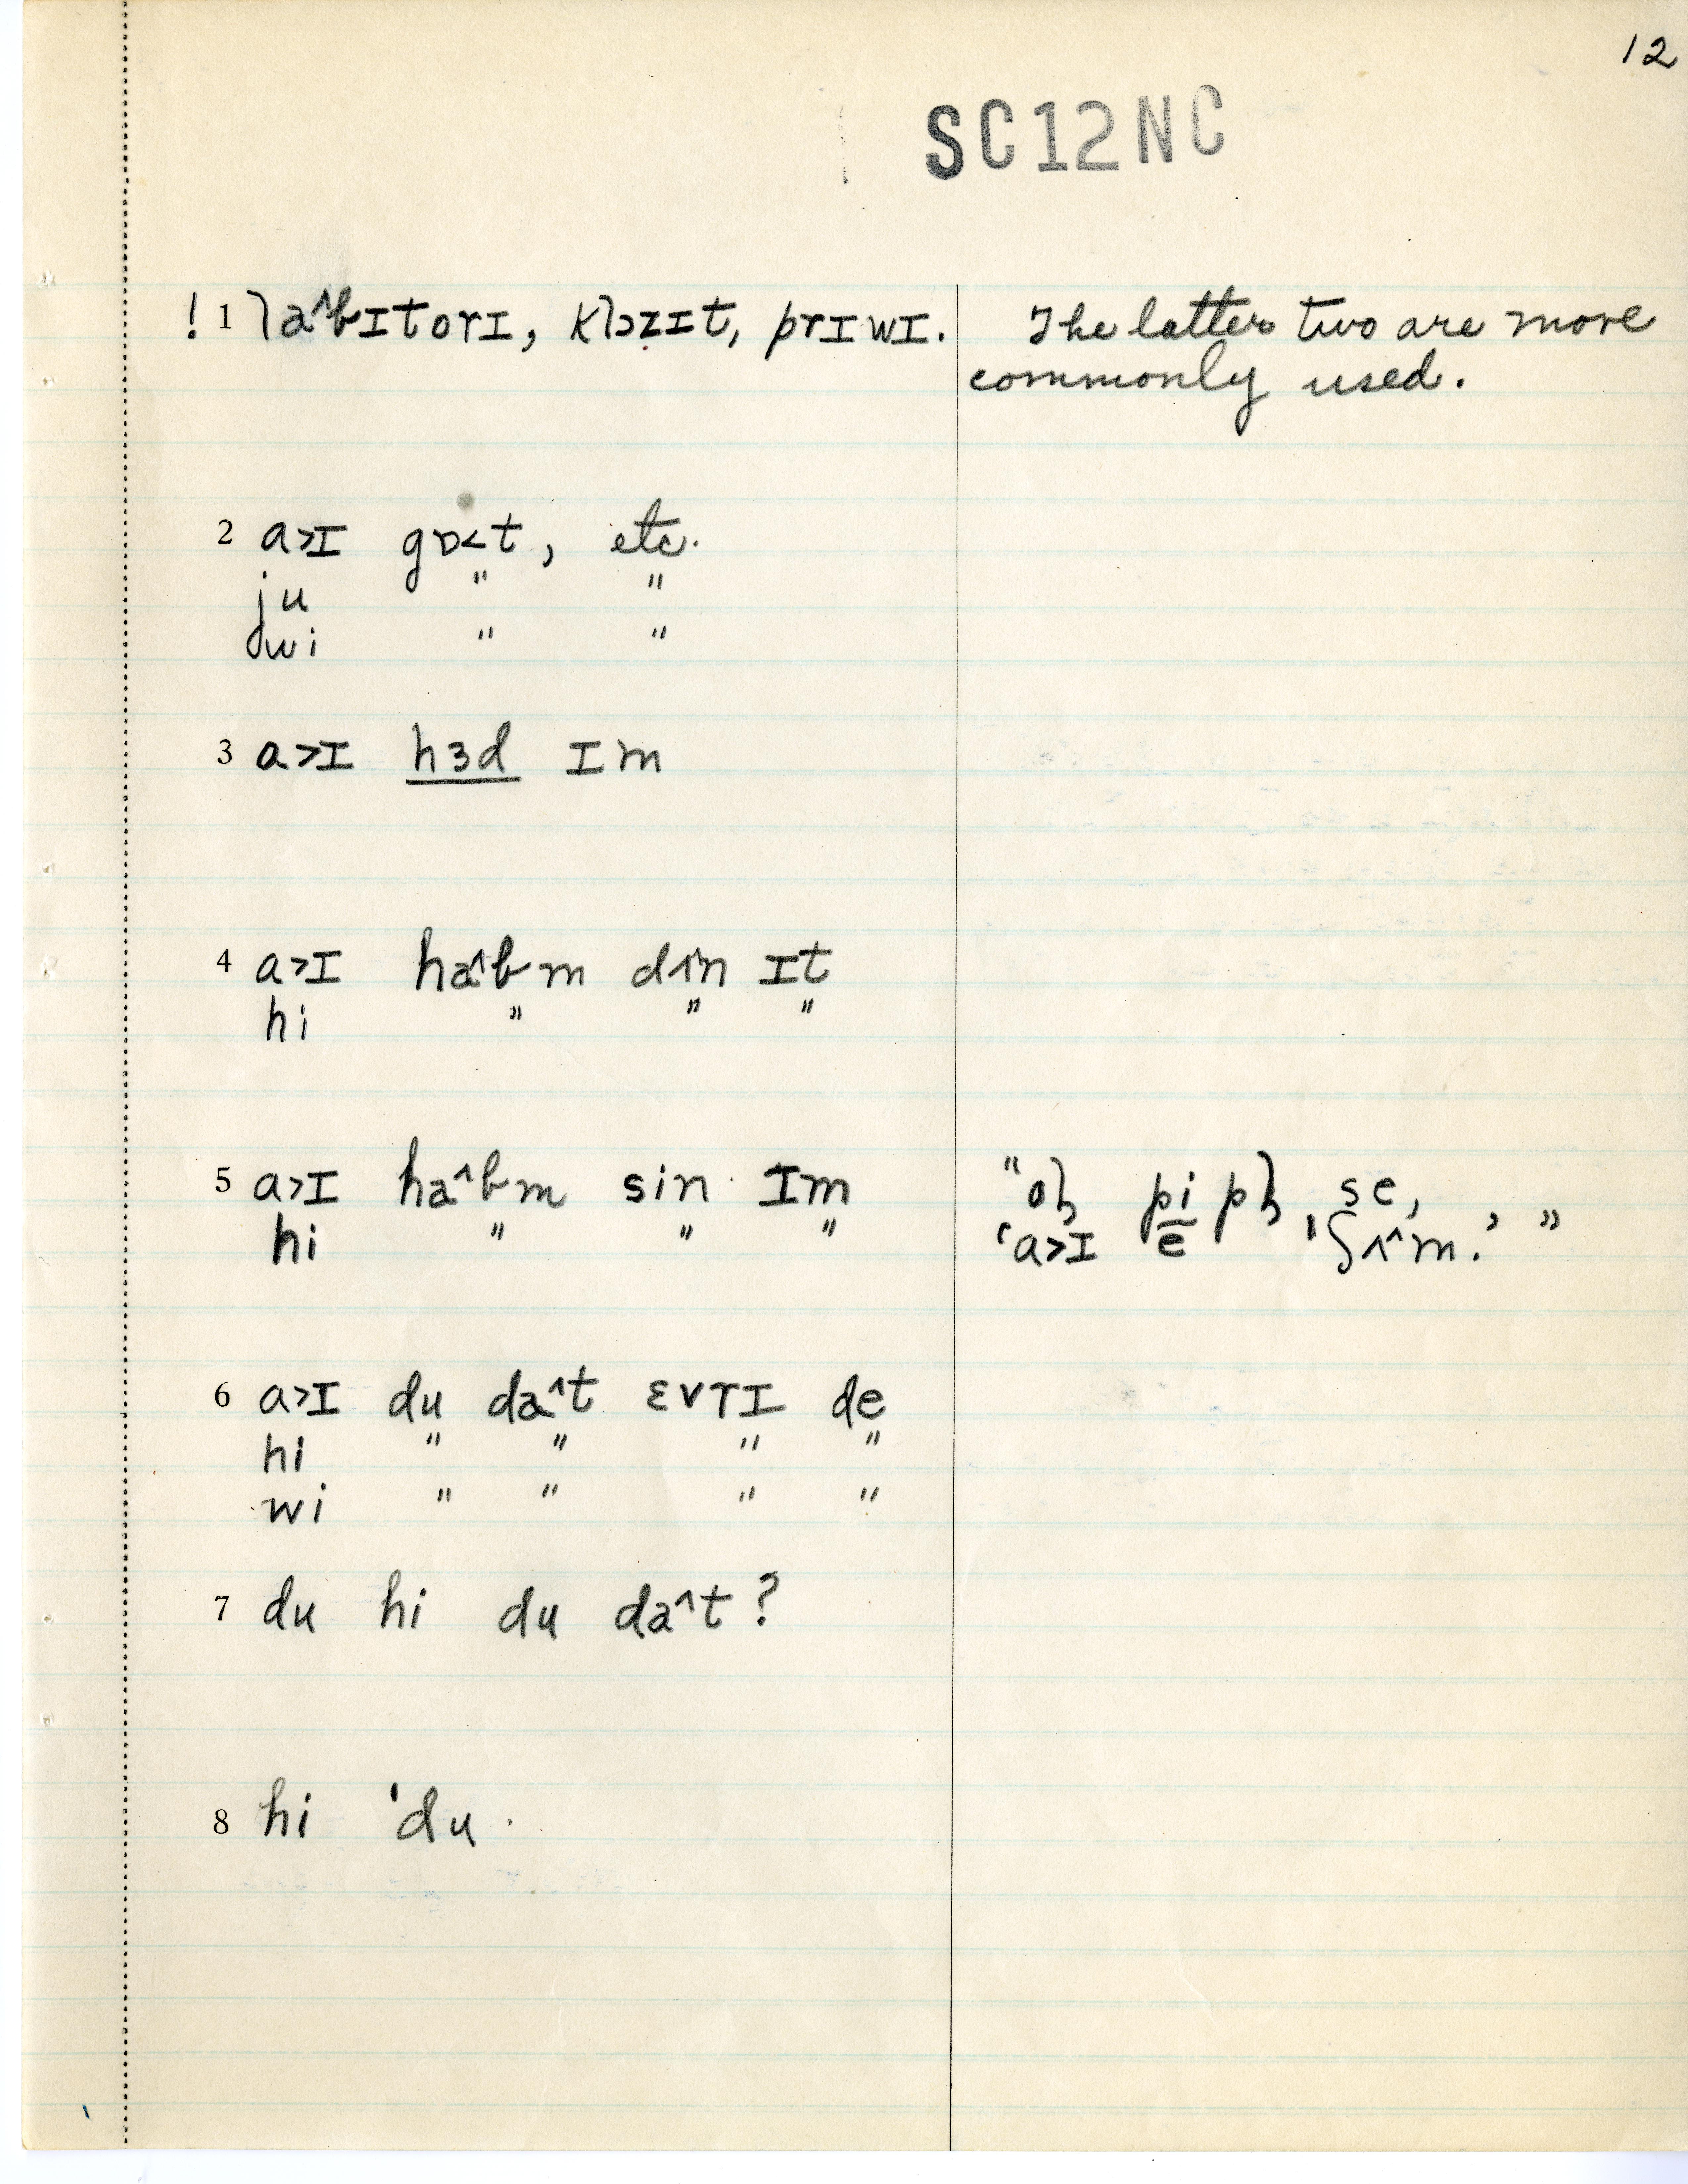 12
SC12NC
! 1 laˆbɪtorɪ, klɔzɪt, prɪwɪ. The latter two are more
commonly used.
2 a>ɪ gɒ<t, etc.
ju " "
wi " "
3 a>ɪ hɜd ɪm
4 a>ɪ haˆbm dʌˆn ɪt
hi " " "
5 a>ɪ haˆbm sin ɪm
hi " " "
" pi se,
'a>ɪ e 'ʃʌˆm.' "
6 a>ɪ du daˆt ɛvrɪ de
hi " " " "
wi " " " "
7 du hi du daˆt?
8 hi 'du.